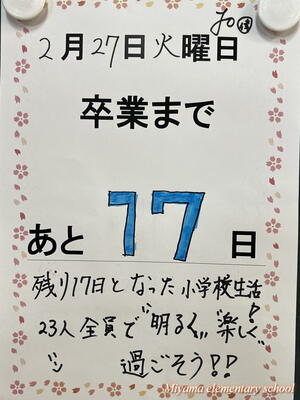 2月27日火曜日
卒業まで
あと 17 日
残り17日となった小学校生活!
23人全員で"明るく""楽しく"
過ごそう!!
Miyama elementary school